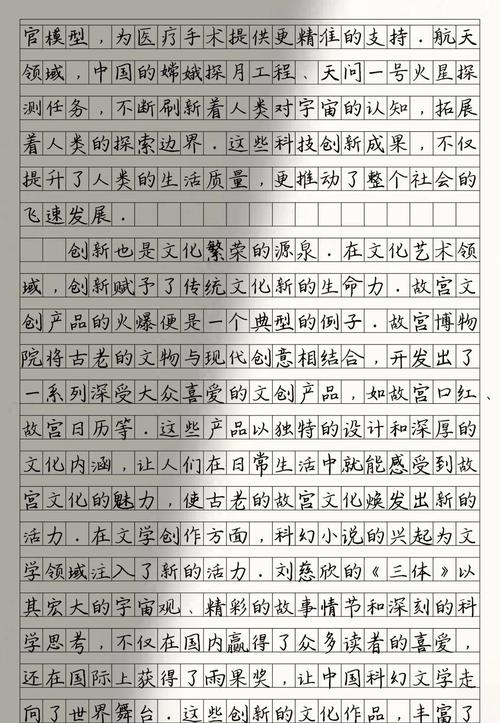 官模型，为医疗手术提供更精准的支持．航天
领域，中国的嫦娥探月工程、天问一号火星探
测任务，不断刷新着人类对宇宙的认知，拓展
着人类的探索边界．这些科技创新成果，不仅
提升了人类的生活质量，更推动了整个社会的
飞速发展．
创新也是文化繁荣的源泉．在文化艺术领
域，创新赋予了传统文化新的生命力．故宫文
创产品的火爆便是一个典型的例子．故宫博物
院将古老的文物与现代创意相结合，开发出了
一系列深受大众喜爱的文创产品，如故宫口红、
故宫日历等．这些产品以独特的设计和深厚的
文化内涵，让人们在日常生活中就能感受到故
宫文化的魅力，使古老的故宫文化焕发出新的
活力．在文学创作方面，科幻小说的兴起为文
学领域注入了新的活力．刘慈欣的《三体》以
其宏大的宇宙观、精彩的故事情节和深刻的科
学思考，不仅在国内赢得了众多读者的喜爱，
还在国际上获得了雨果奖，让中国科幻文学走
向了世界舞台．这些创新的文化作品，丰富了